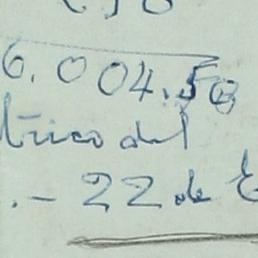 6.004.50
trico del
.- 22 de E